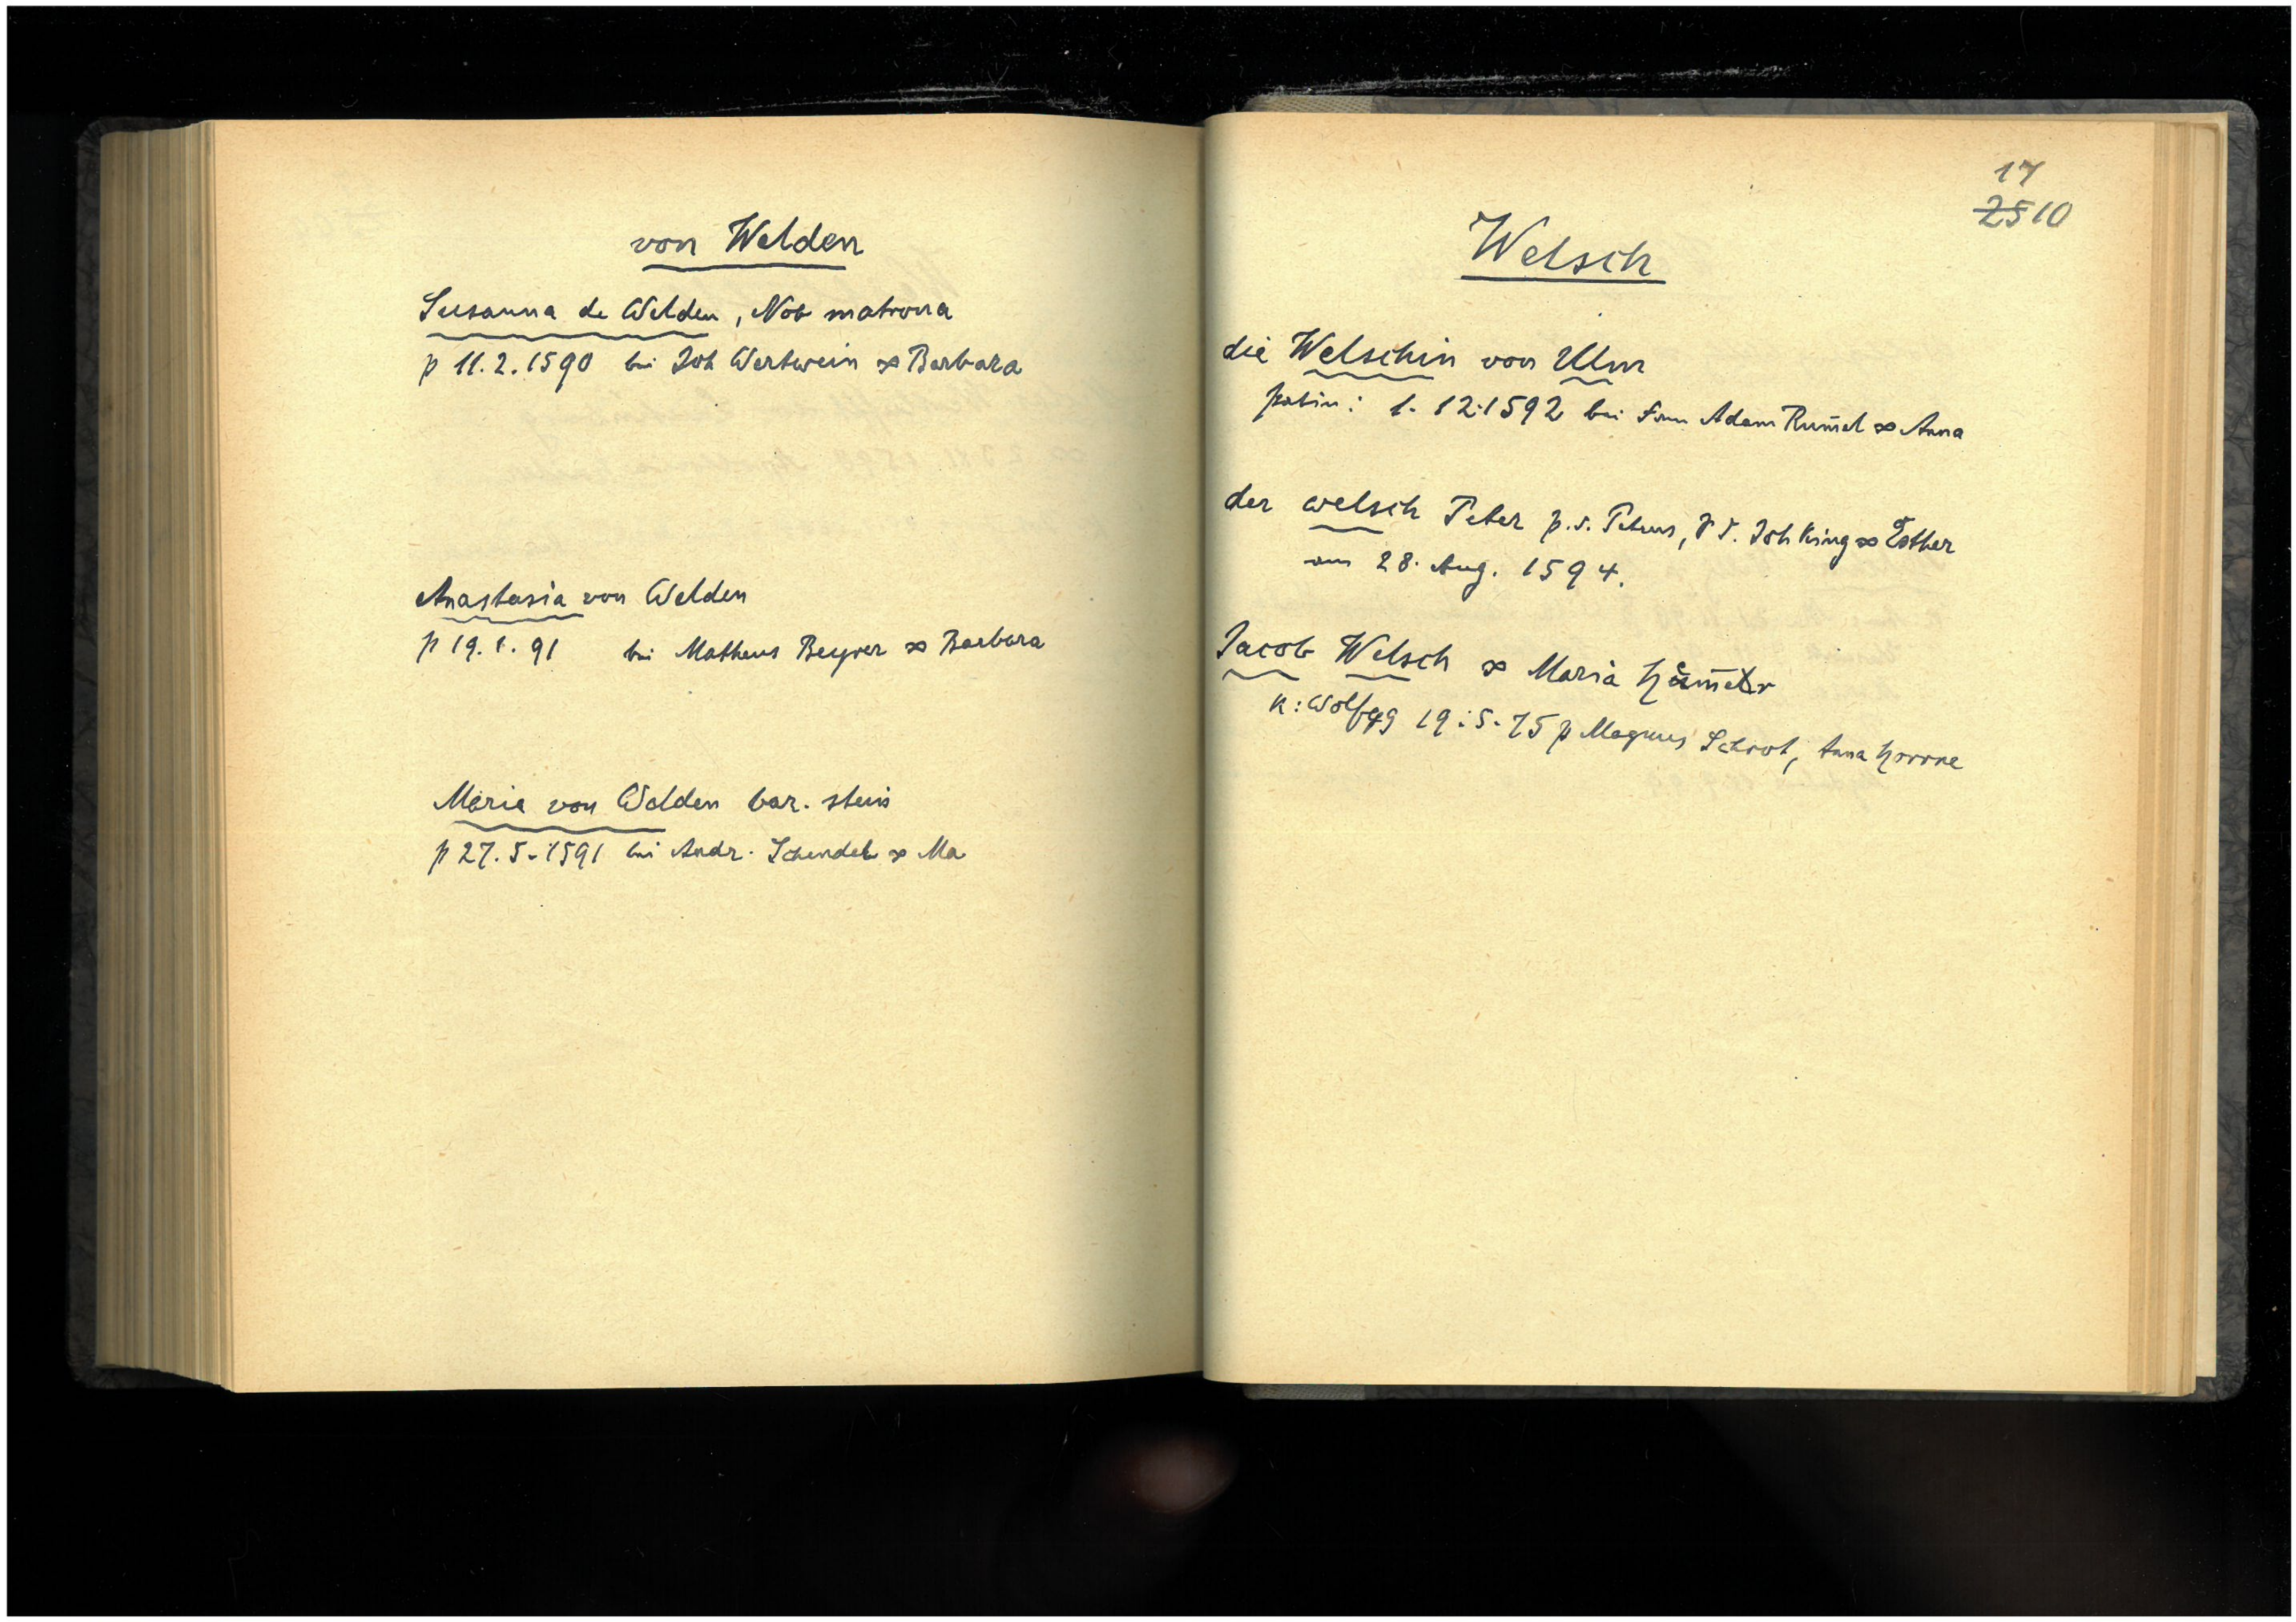 von Welden
Susanna de Welden, Nob matrona
p 11.2.1590 bei Joh Wertwein ∞ Barbara
Anastasia von Welden
p 19.1.91 bei Matheus Beyrer ∞ Barbara
Maria von Welden bar. stein
p 27.5.1591 bei Andr. Schendel ∞ Ma
17
25 10
Welsch
die Welschin von Ulm
patin: 1.12.1592 bei Adam Rum̄el ∞ Anna
der welsch Peter p.s. Petrus, Joh King ∞ Esther
am 28. Aug. 1594.
Jacob Welsch ∞ Maria
K: Wolfgg 19.5.75 p Magnus Schrot, Anna